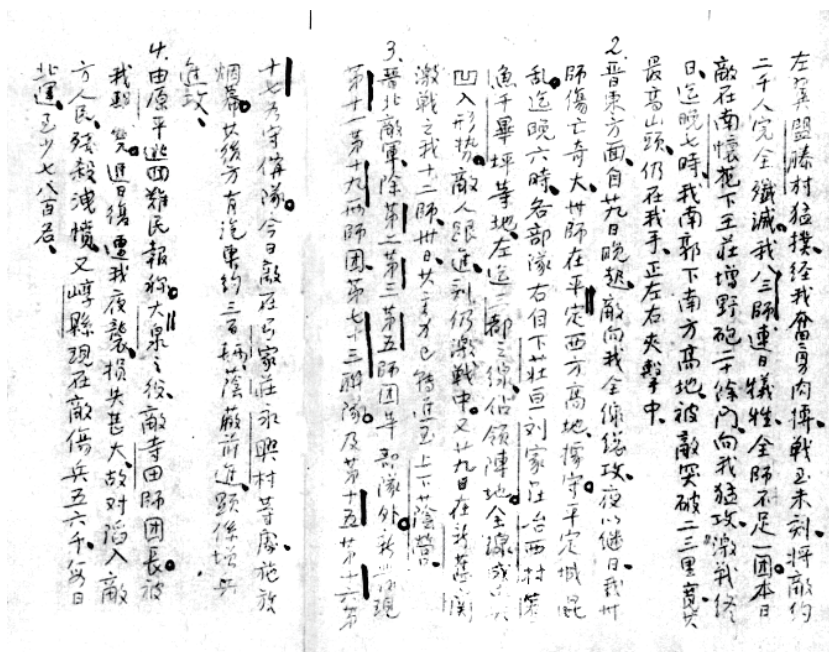 左翼盟騰村猛撲、经我奮勇肉搏、戰至未刻、将敵约
二千人完全殲滅、我八三師連日犠牲、全師不足一团、本日
敵在南懷花下王莊增野砲二十餘门、向我猛攻、激戰终
日、迄晚七時、我南郭下南方高地、被敵突破二三里寬、其
最高山頭、仍在我手、正左右夾擊中、
2.晋東方面、自廿九日晚起、敵向我全線總攻、夜以继日、我卅
師傷亡奇大、卅師在平定西方高地、據守平定城、
乱、迄晚六時、各部隊右自下莊亘刘家莊、台西村
漁千畢坪等地、左迄 部之線、佔領陣地、全線成
凹入形势、敵人跟進、刻仍激戰中、又廿九日在新舊関
激戰之我十二師、卅日其主力已轉進至上下蔭營、
3.晋北敵軍、除第二第三第五師团等部隊外、新發現
第十一第十九两師团、第七十三聯隊、及第十五第十六第
十七号守備隊、今日敵在弓家莊永興村等處施放
烟幕、其後方有汽車约三百輛、蔭蔽前進、顯係增兵
進攻、
4.由原平逃回難民報称、大泉之役、敵寺田師团長、被
我擊斃、進日復遭我夜襲、損失甚大、故对滔入敵
方人民、殘殺洩憤、又崞縣現在敵傷兵五六千、每日
北運至少七八百名、